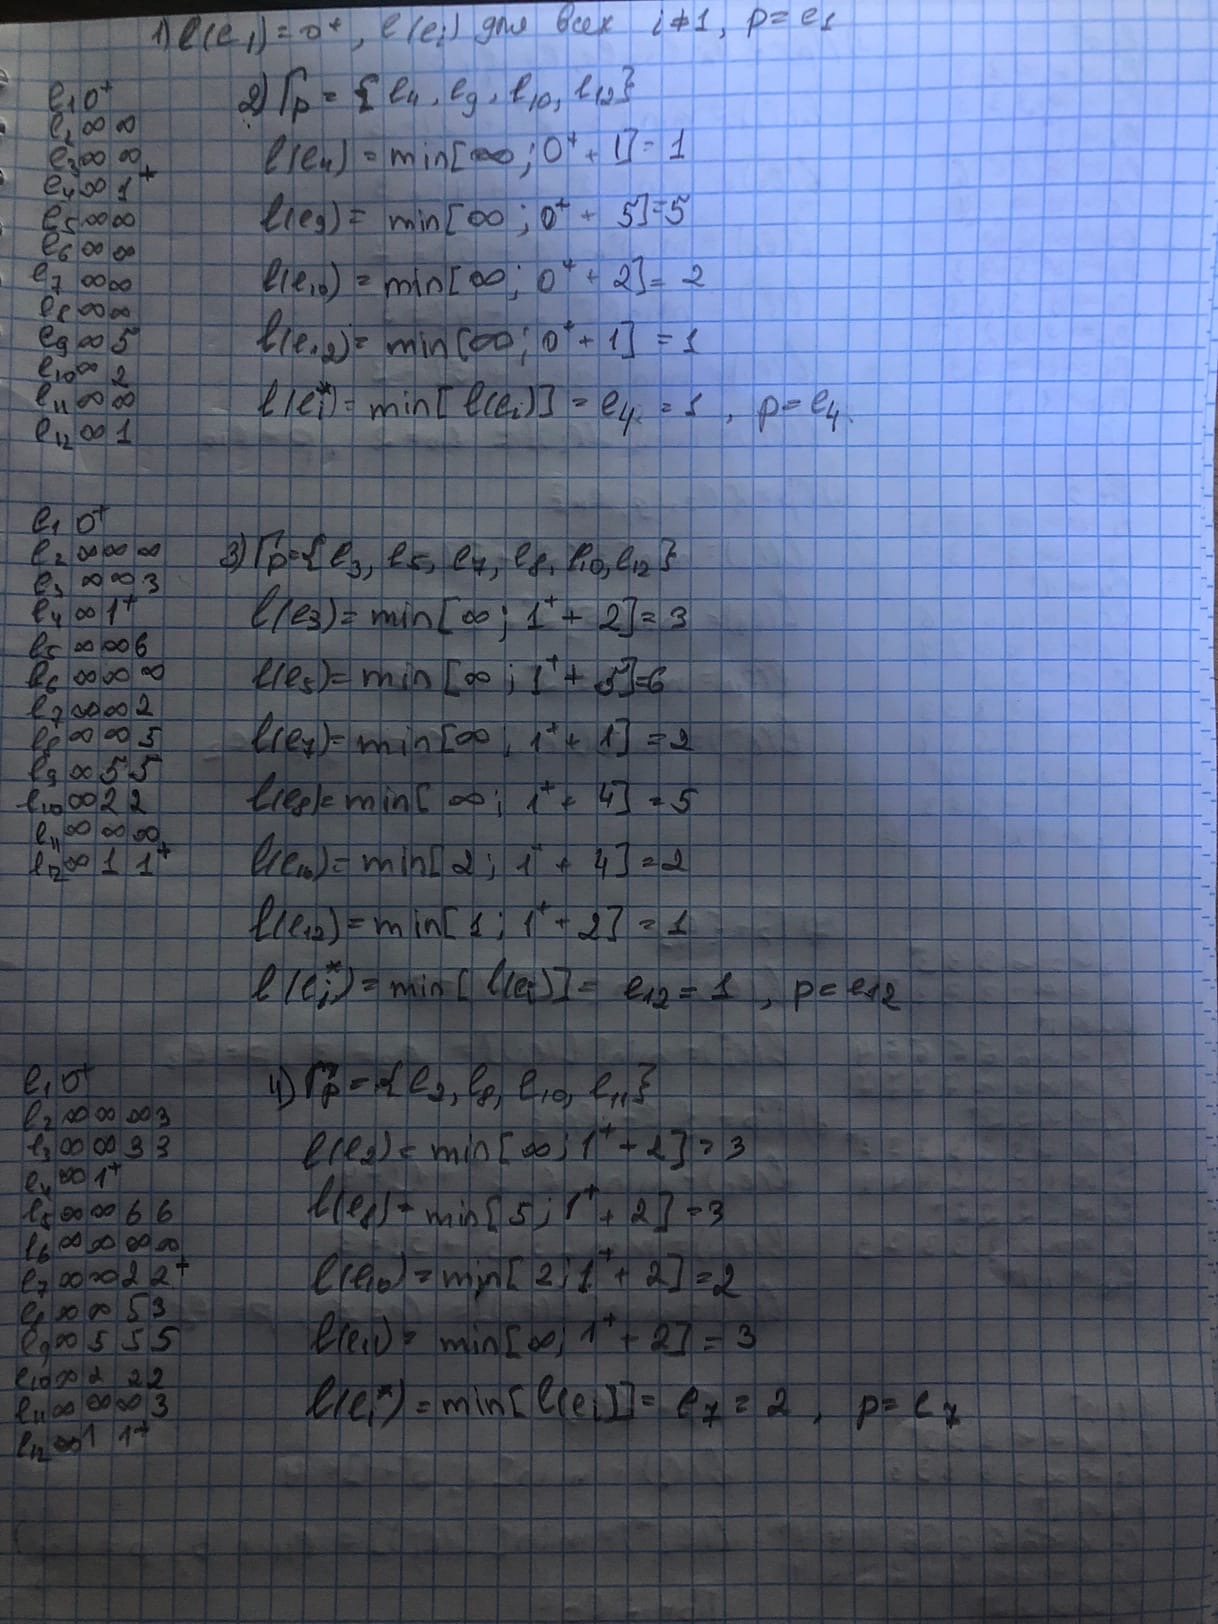 1) l(e₁)=0⁺, l(eᵢ) для всех i≠1, p=e₁
e₁ 0⁺
e₂ ∞ ∞
e₃ ∞ ∞
e₄ ∞ 1⁺
e₅ ∞ ∞
e₆ ∞ ∞
e₇ ∞ ∞
e₈ ∞ ∞
e₉ ∞ 5
e₁₀ ∞ 2
e₁₁ ∞ ∞
e₁₂ ∞ 1
2) Гp = {e₄, e₉, e₁₀, e₁₂}
l(e₄) = min[∞; 0⁺ + 1] = 1
l(e₉) = min[∞; 0⁺ + 5] = 5
l(e₁₀) = min[∞; 0⁺ + 2] = 2
l(e₁₂) = min[∞; 0⁺ + 1] = 1
l(eᵢ*) = min[l(eᵢ)] = e₄ = 1, p = e₄.
e₁ 0⁺
e₂ ∞ ∞ ∞
e₃ ∞ ∞ 3
e₄ ∞ 1⁺
e₅ ∞ ∞ 6
e₆ ∞ ∞ ∞
e₇ ∞ ∞ 2
e₈ ∞ ∞ 5
e₉ ∞ 5 5
e₁₀ ∞ 2 2
e₁₁ ∞ ∞ ∞
e₁₂ ∞ 1 1⁺
3) Гp = {e₃, e₅, e₇, e₈, e₁₀, e₁₂}
l(e₃) = min[∞; 1⁺ + 2] = 3
l(e₅) = min[∞; 1⁺ + 5] = 6
l(e₇) = min[∞; 1⁺ + 1] = 2
l(e₈) = min[∞; 1⁺ + 4] = 5
l(e₁₀) = min[2; 1⁺ + 4] = 2
l(e₁₂) = min[1; 1⁺ + 2] = 1
l(eᵢ*) = min[l(eᵢ)] = e₁₂ = 1, p = e₁₂
e₁ 0⁺
e₂ ∞ ∞ ∞ 3
e₃ ∞ ∞ 3 3
e₄ ∞ 1⁺
e₅ ∞ ∞ 6 6
e₆ ∞ ∞ ∞ ∞
e₇ ∞ ∞ 2 2⁺
e₈ ∞ ∞ 5 3
e₉ ∞ 5 5 5
e₁₀ ∞ 2 2 2
e₁₁ ∞ ∞ ∞ 3
e₁₂ ∞ 1 1⁺
4) Гp = {e₂, e₈, e₁₀, e₁₁}
l(e₂) = min[∞; 1⁺ + 2] = 3
l(e₈) = min[5; 1⁺ + 2] = 3
l(e₁₀) = min[2; 1⁺ + 2] = 2
l(e₁₁) = min[∞; 1⁺ + 2] = 3
l(eᵢ*) = min[l(eᵢ)] = e₇ = 2, p = e₇